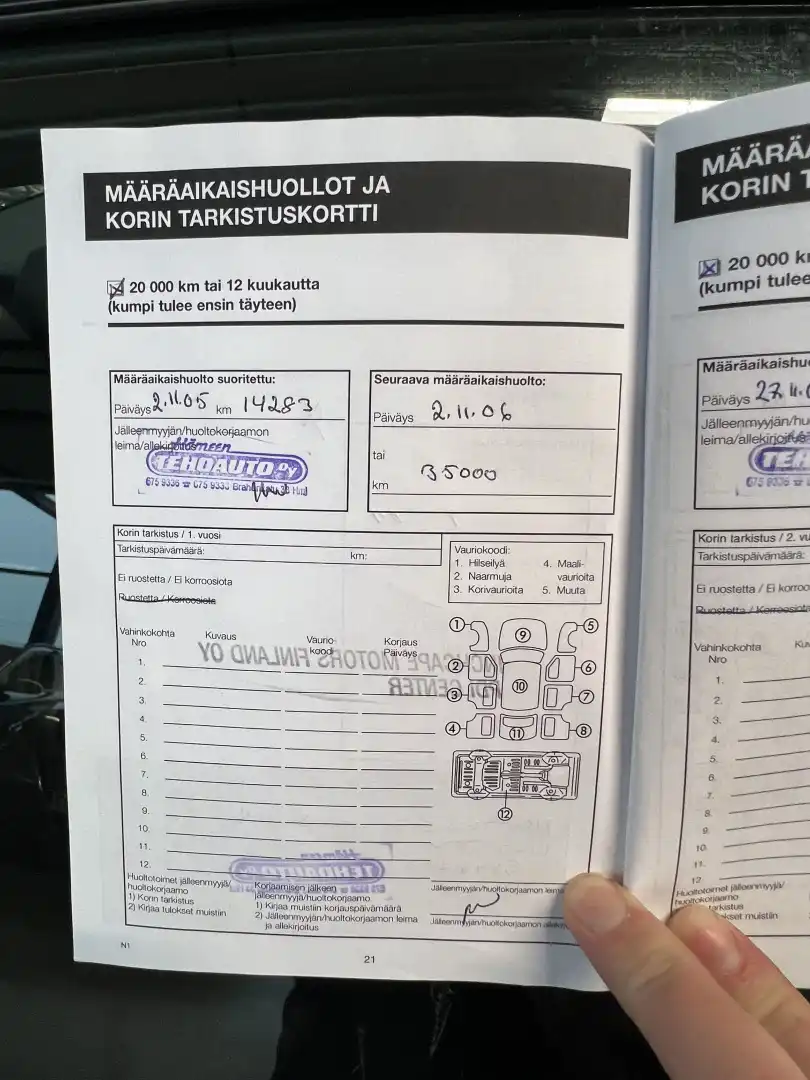 MÄÄRÄAIKAISHUOLLOT JA
KORIN TARKISTUSKORTTI
20 000 km tai 12 kuukautta
(kumpi tulee ensin täyteen)
Määräaikaishuolto suoritettu:
Päiväys 2.11.05 km 14283
Jälleenmyyjän/huoltokorjaamon
leima/allekirjoitus
Hämeen
TEHOAUTO Oy
675 9336 ☎ 675 9333
Seuraava määräaikaishuolto:
Päiväys 2.11.06
tai
km 35000
Korin tarkistus / 1. vuosi
Tarkistuspäivämäärä: km:
Ei ruostetta / Ei korroosiota
Ruostetta / Korroosiota
Vauriokoodi:
1. Hilseilyä
2. Naarmuja
3. Korivaurioita
4. Maali-
vaurioita
5. Muuta
Vahinkokohta
Nro
Kuvaus
Vaurio-
koodi
Korjaus
Päiväys
INCHCAPE MOTORS FINLAND OY
PDI CENTER
1.
2.
3.
4.
5.
6.
7.
8.
9.
10.
11.
12.
1
2
3
4
5
6
7
8
9
10
11
12
Hämeen
TEHOAUTO
Huoltotoimet jälleenmyyjä/
huoltokorjaamo
1) Korin tarkistus
2) Kirjaa tulokset muistiin
Korjaamisen jälkeen
jälleenmyyjä/huoltokorjaamo
1) Kirjaa muistiin korjauspäivämäärä
2) Jälleenmyyjän/huoltokorjaamon leima
ja allekirjoitus
Jälleenmyyjän/huoltokorjaamon leima
Jälleenmyyjän/huoltokorjaamon
N1
21
MÄÄRÄA
KORIN T
20 000 k
(kumpi tulee
Määräaikaishu
Päiväys 27.11.0
Jälleenmyyjän/
leima/allekirjoitus
TE
675 9336 ☎
Korin tarkistus / 2. vu
Tarkistuspäivämäärä:
Ei ruostetta / Ei korroo
Ruostetta / Korroosiota
Vahinkokohta
Nro
Ku
1.
2.
3.
4.
5.
6.
7.
8.
9.
10.
11.
12.
Huoltotoimet jälleenmyyjä/
huoltokorjaamo
tarkistus
kset muistiin